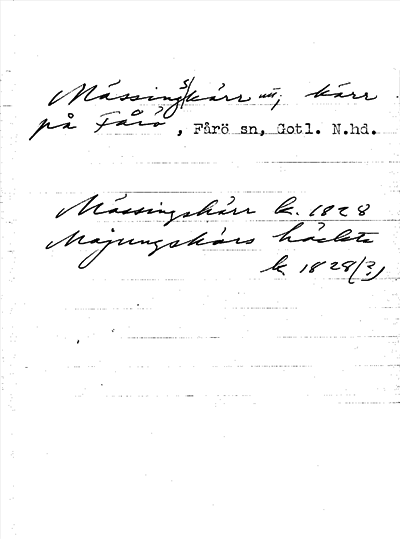 Mässingskärr utt; kärr
på Fårö, Fårö sn, Gotl. N.hd.
Mässingskärr k. 1828
Majungskärs
k 1828(?)